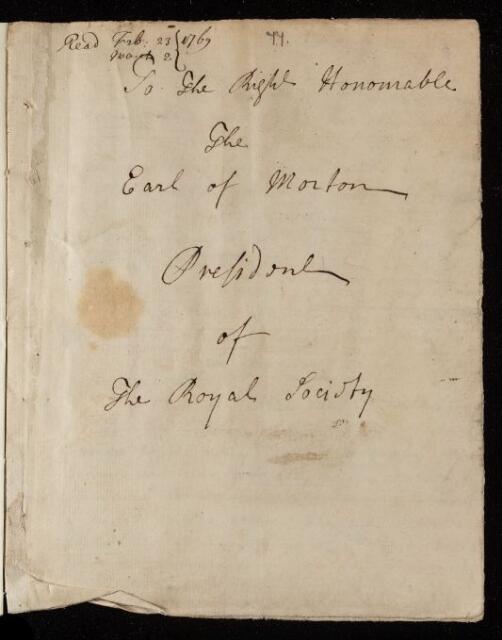 Read Feb: 23 } 1769
March 2. 
44.
To The Right Honourable
The
Earl of Morton
President
of
The Royal Society